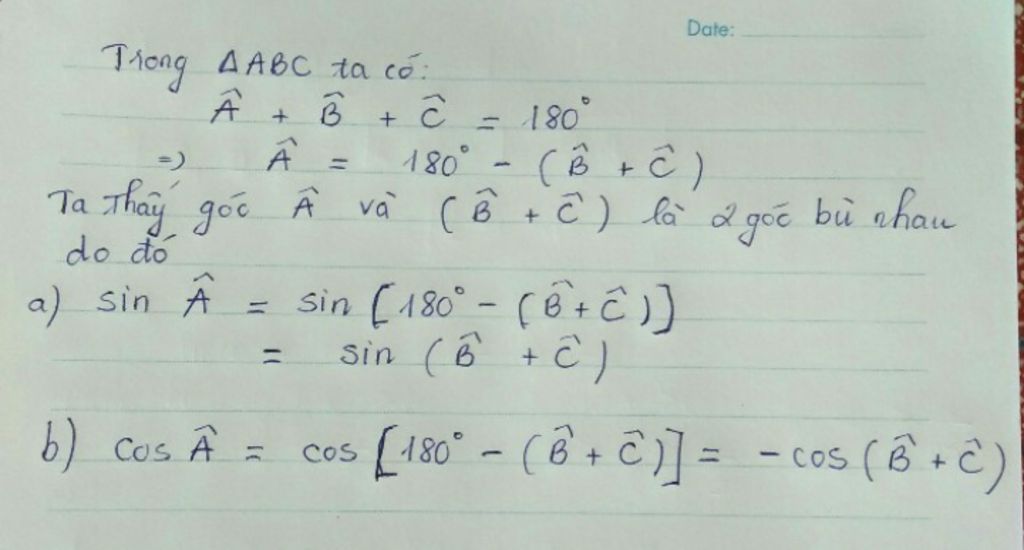 Date:
Trong ΔABC ta có:
Â + B̂ + Ĉ = 180°
=> Â = 180° - (B̂ + Ĉ)
Ta thấy góc Â và (B̂ + Ĉ) là 2 góc bù nhau
do đó
a) sin Â = sin [180° - (B̂ + Ĉ)]
= sin (B̂ + Ĉ)
b) cos Â = cos [180° - (B̂ + Ĉ)] = - cos (B̂ + Ĉ)